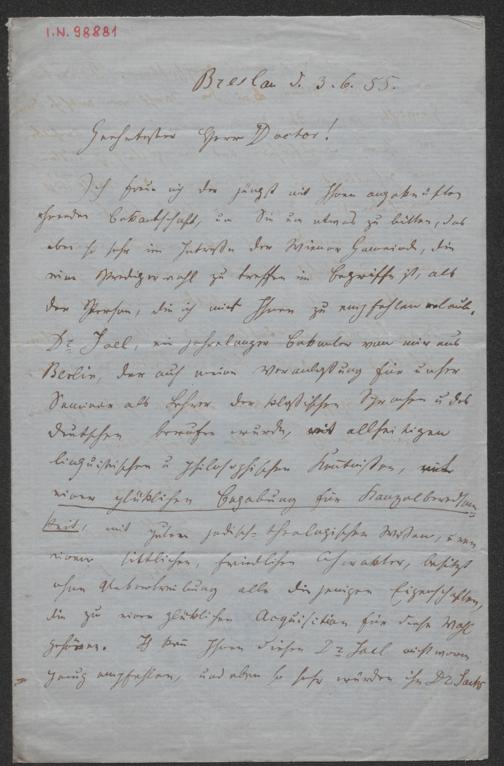 I.N. 98881
Breslau d. 3.6.55.
Geehrtester Herr Doctor!
Ich freue mich der jüngst mit Ihnen angeknüpften
ehrenden Bekanntschaft, um Sie um etwas zu bitten, das
eben so sehr im Interesse der Wiener Gemeinde, die
eine Predigerwahl zu treffen im Begriffe ist, als
der Person, die ich mir Ihnen zu empfehlen erlaube.
Dr Joel, ein jahrelanger Bekannter von mir aus
Berlin, der auf meine Veranlassung für unser
Seminar als Lehrer der klassischen Sprachen u des
deutschen berufen wurde, mit allseitigen
linguistischen u philosophischen Kenntnissen, mit
einer glücklichen Begabung für Kanzelberedsam-
keit, mit gutem jüdisch-theologischen Wissen, u von
einem sittlichen, friedlichen Charakter, besitzt
ohne Uebertreibung alle diejenigen Eigenschaften,
die zu einer glücklichen Acquisition für diese Wahl
gehören. Ich kann Ihnen diesen Dr Joel nicht warm
genug empfehlen, und eben so sehr würden ihn Dr Sachs